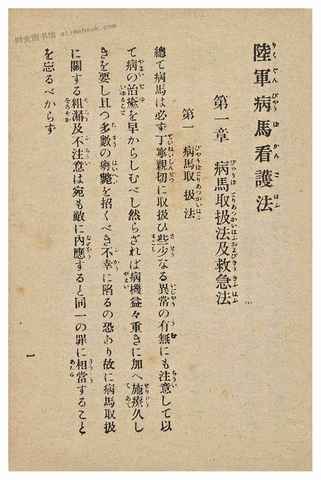 陸軍病馬看護法
第一章 病馬取扱法及救急法
第一 病馬取扱法
總て病馬は必ず丁寧親切に取扱ひ些少なる異常の有無にも注意して以
て病の治癒を早からしむべし然らざれば病機益々重きに加へ施療久し
きを要し且つ多數の斃を招くべき不幸に陷るの恐あり故に病馬取扱
に關する粗漏及不注意は宛も敵に內應すると同一の罪に相當すること
を忘るべからず
一